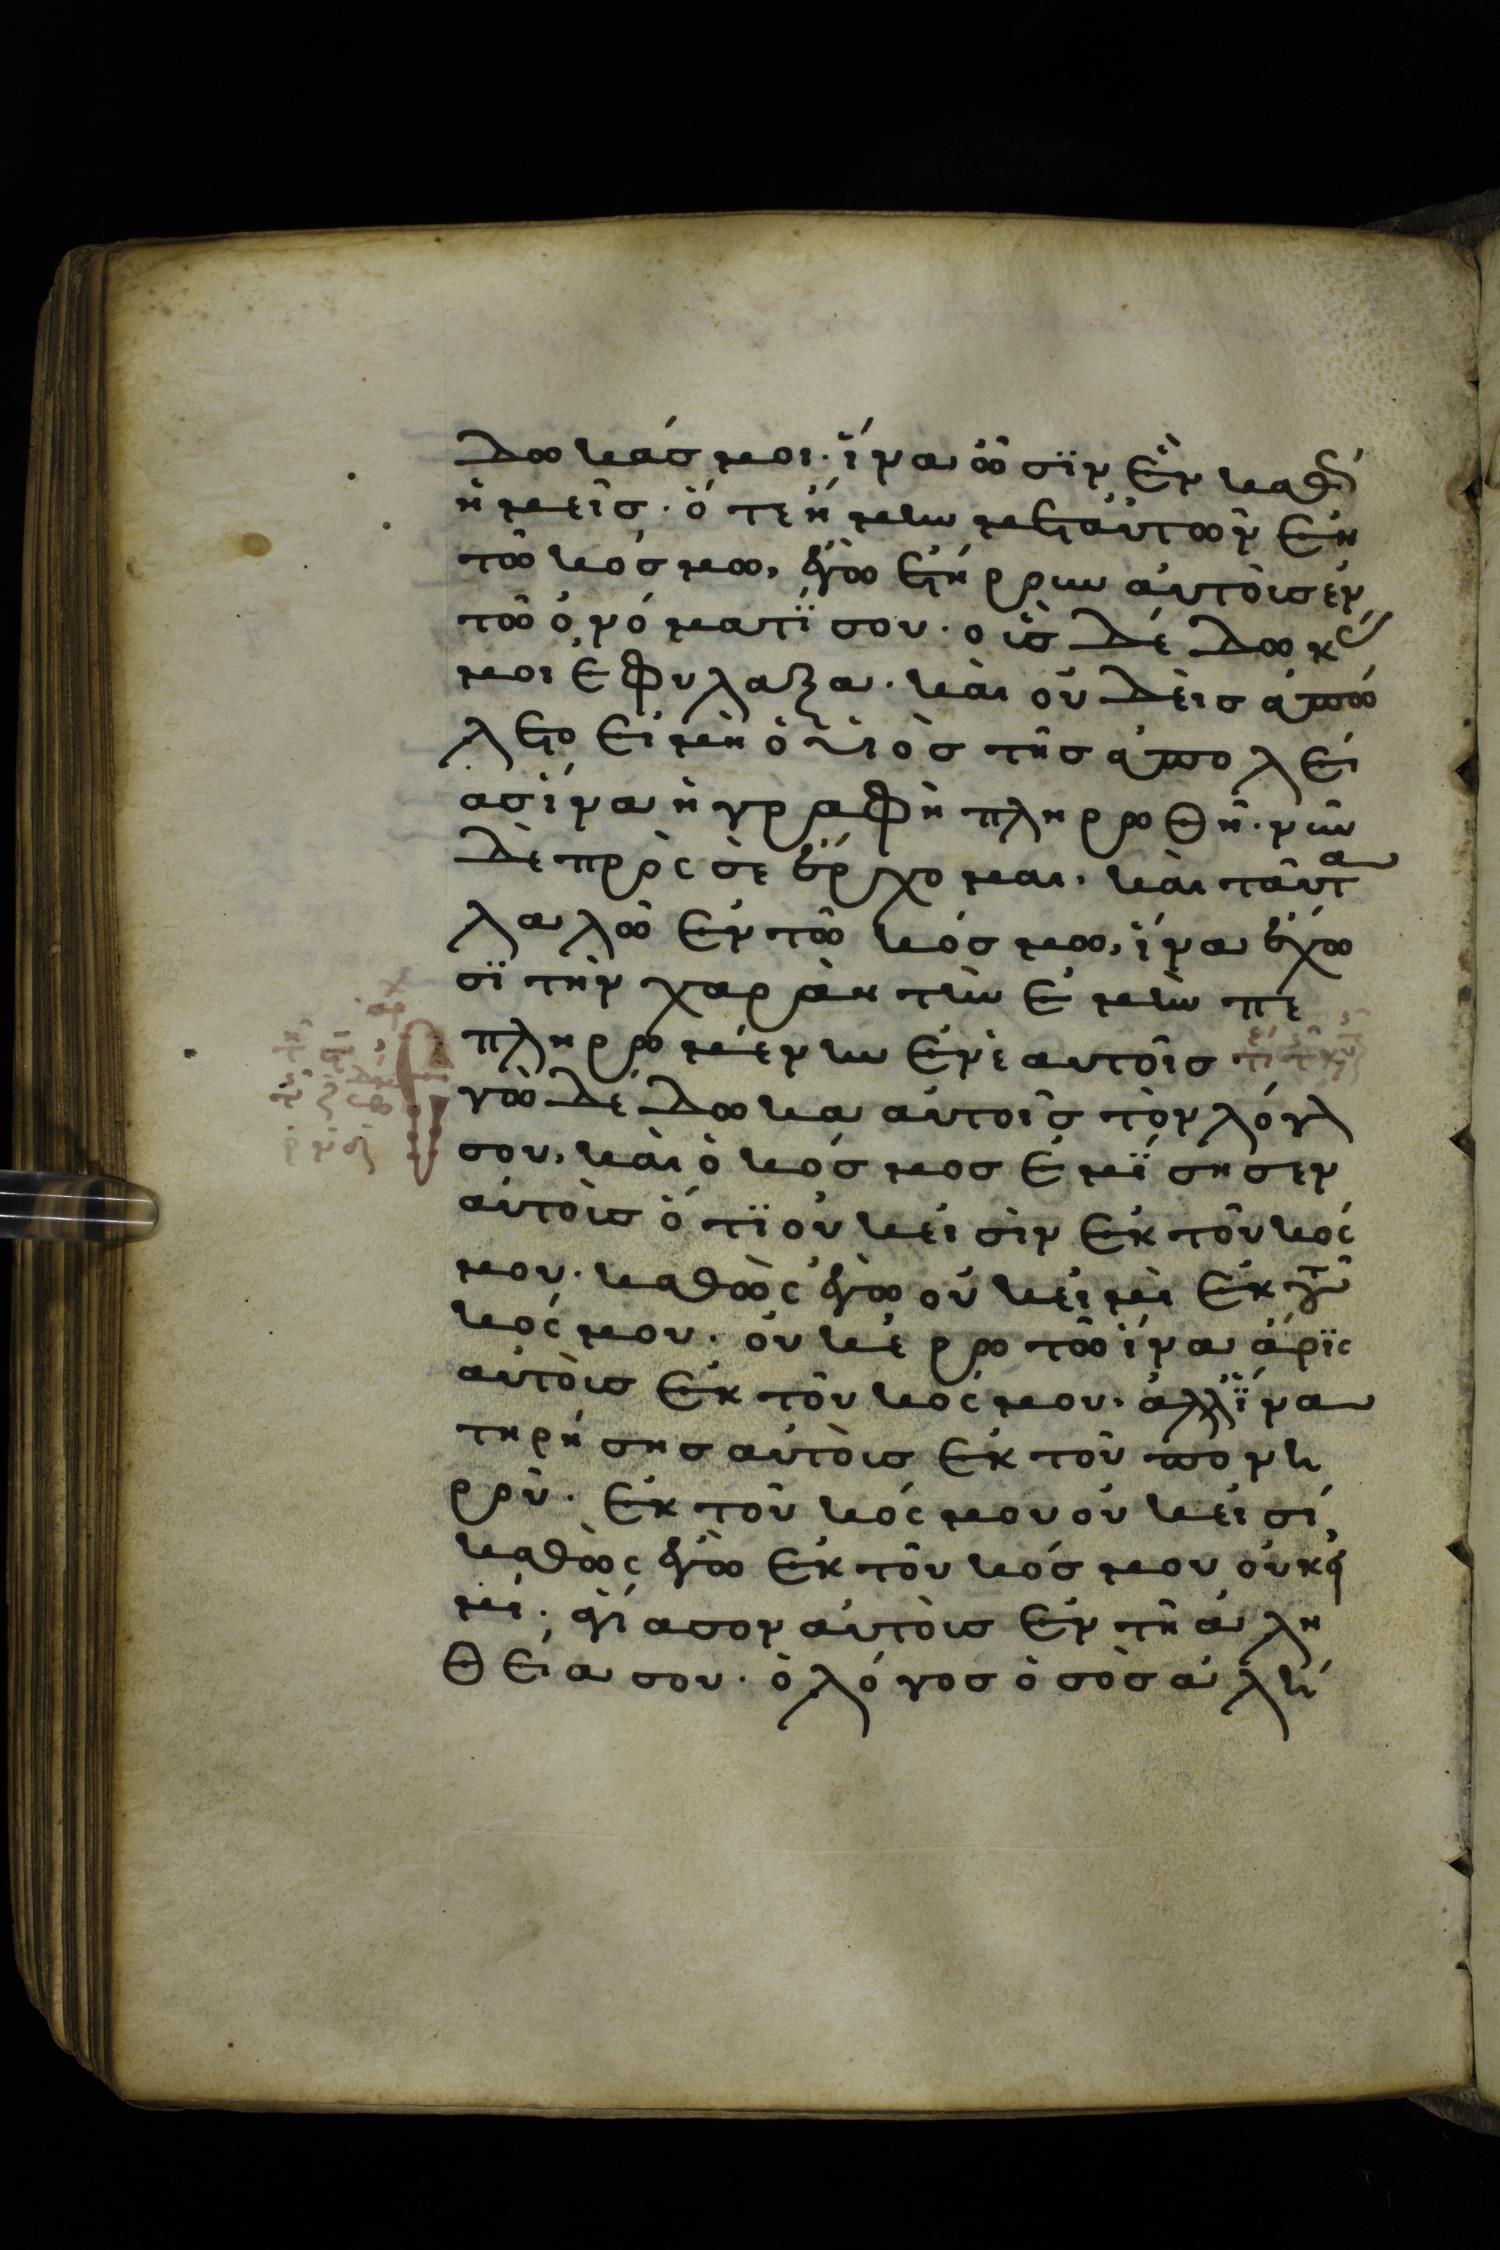 δωκάσ μοι· ἵνα ὦσϊν ἓν καθὼ
ἡμεῖσ· ὅτε ἤμην μετ' αὐτῶν ἐν
τῶ κόσμω, ἐγὼ ἐτήρρουν αὐτοὶσ ἐν
τῶ ὀνόματϊ σου· οἳσ δέδωκάσ
μοι ἐφύλαξα· καὶ οὐδεὶσ ἀπώ
λετο εἰ μὴ ὁ ὑιὸσ τῆσ ἀπολεί
ασ ἵνα ἡ γραφὴ πληρρωθῆ· νῦν
δὲ πρὸς σὲ ἔρχομαι· καὶ ταῦτα
λαλῶ ἐν τῶ κόσμω, ἵνα ἔχω
σϊ τὴν χαρὰν τὴν ἐμὴν πε
πληρρωμένην ἐν ἑαυτοῖσ
γὼ δέδωκα αὐτοῖσ τὸν λόγον
σου, καὶ ὁ κόσμοσ ἐμΐσησεν
αὐτοὶσ ὅτϊ οὐκ εἰσὶν ἐκ τοῦ κός
μου· καθὼς ἐγὼ οὐκ εἰμὶ ἐκ τοῦ
κός μου· οὐκ ἐρρωτῶ ἵνα ἄρϊς
αὐτοὶσ ἐκ τοῦ κός μου· ἀλλ' ἵνα
τηρήσησ αὐτοὶσ ἐκ τοῦ πονη
ρροῦ· ἐκ τοῦ κός μου οὐκ εἰσί,
καθὼς ἐγὼ ἐκ τοῦ κόσμου οὐκ εἰ
μί· ἁγίασον αὐτοὶσ ἐν τῆ ἀλη
θεία σου· ὁ λόγοσ ὁ σὸσ ἀλή